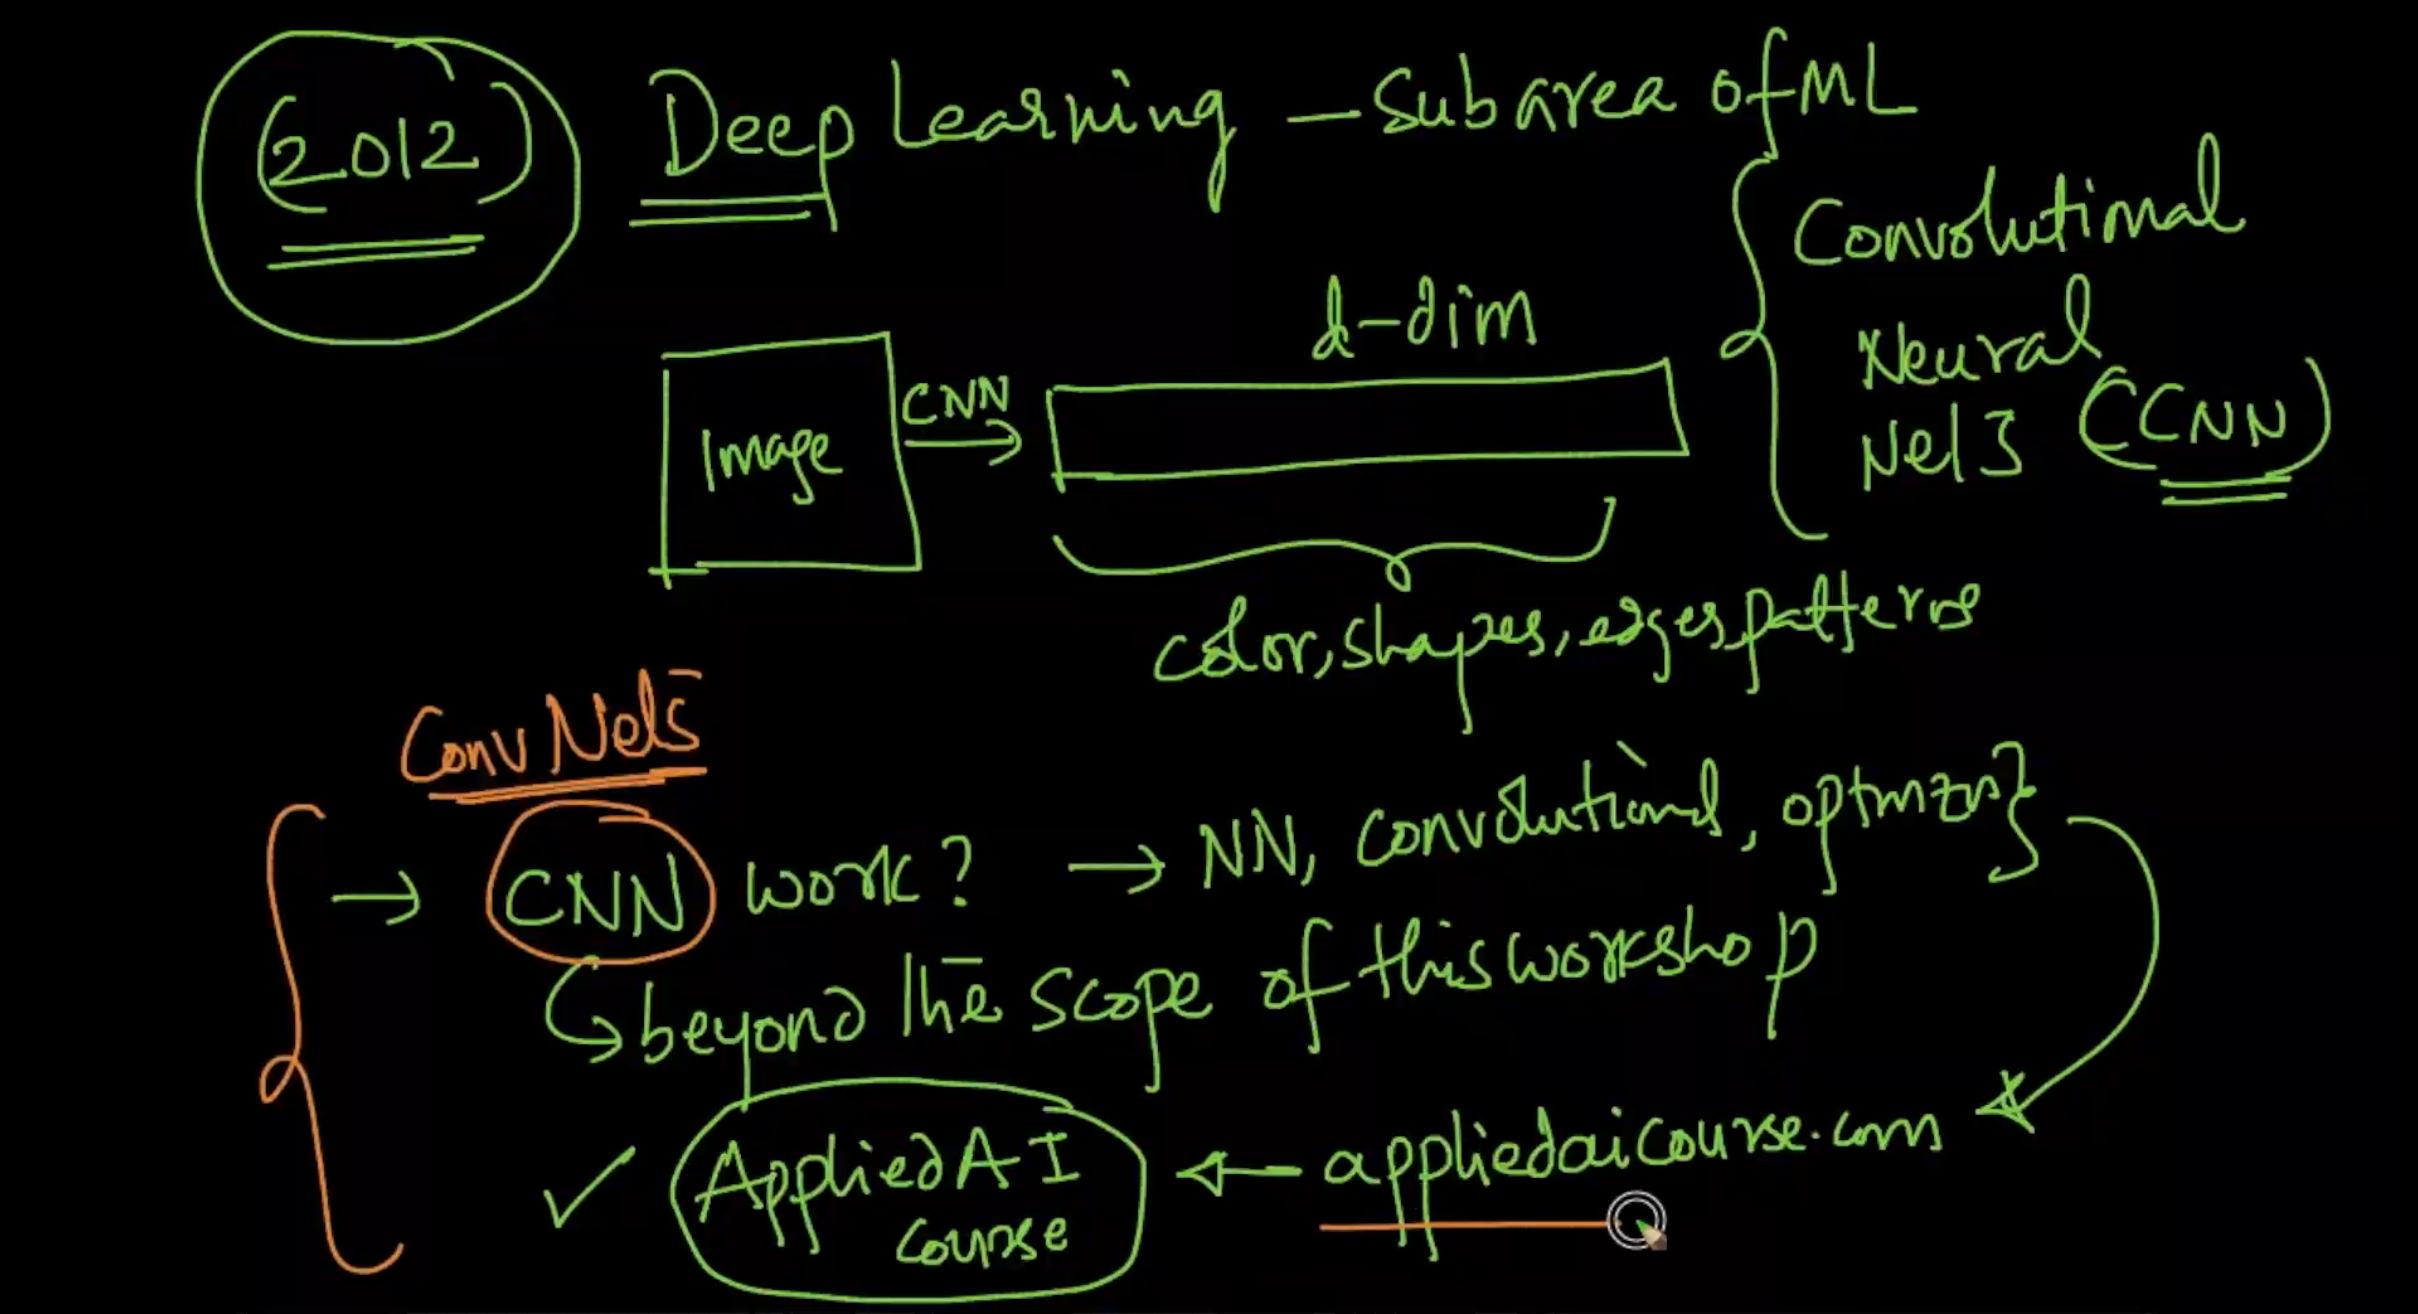 (2012) Deep Learning – Subarea of ML
Convolutional
Neural
Nets (CNN)
d-dim
Image
CNN
color, shapes, edges, patterns
ConvNets
→ CNN work? → NN, convolutional, optmzn}
beyond the scope of this workshop
✓ Applied AI
course
← appliedaicourse.com